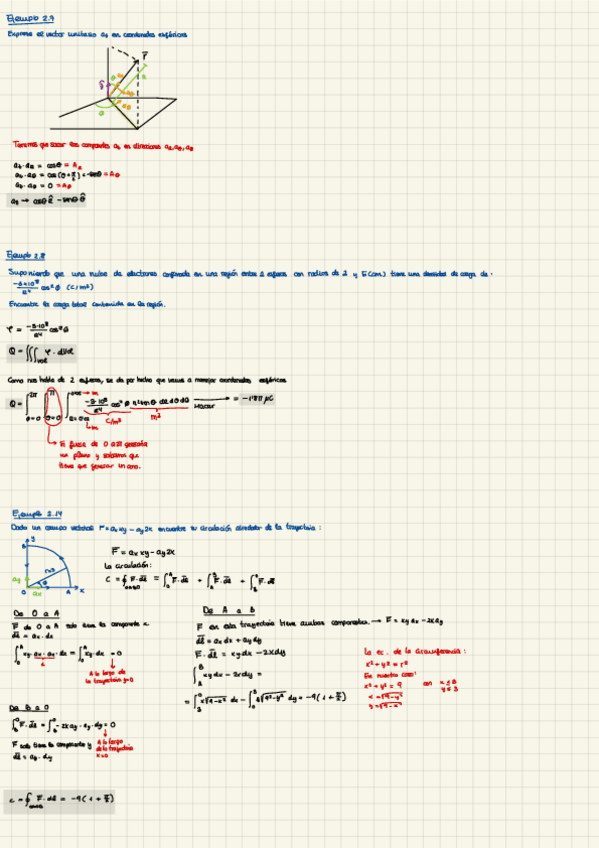 Ejemplo 2.7
Exprese el vector unitario az en coordenadas esféricas
r̄
θ
Tenemos que sacar las componentes az en direcciones aR, aθ, aφ
az · aR = cosθ = AR
az · aθ = cos(θ + π/2) = -senθ = Aθ
az · aφ = 0 = Aφ
az → cosθ R̂ - senθ θ̂
Ejemplo 2.8
Suponiendo que una nube de electrones confinada en una región entre 2 esferas con radios de 2 y 5 (cm) tiene una densidad de carga de:
-3·10⁸/R⁴ cos²φ (C/m³)
Encuentre la carga total contenida en la región.
ρ = -3·10⁸/R⁴ cos²φ
Q = ∭vol ρ · dVol
Como nos habla de 2 esferas, se da por hecho que vamos a manejar coordenadas esféricas
→ m
→ m
C/m³
m³
Si fuese de 0 a 2π generaría
un plano y sabemos que
tiene que generar un aro.
Ejemplo 2.14
Dado un campo vectorial F = ax xy - ay 2x encuentre su circulación alrededor de la trayectoria:
y
B
r=3
ay
O
ax
A
x
F̄ = ax xy - ay 2x
La circulación:
C = ∮ F̄·dl̄ = ∫₀ᴬ F̄·dl̄ + ∫ₐᴮ F̄·dl̄ + ∫ᵦ⁰ F̄·dl̄
De O a A
F̄ de O a A solo tiene la componente x
dl̄ = ax · dx
∫₀ᴬ xy · ax · ax · dx = ∫₀ᴬ xy · dx = 0
A lo largo de
la trayectoria y=0
De A a B
F̄ en esta trayectoria tiene ambas componentes. → F̄ = xy ax - 2x ay
dl̄ = ax dx + ay dy
F̄ · dl̄ = xy dx - 2x dy
∫ₐᴮ xy dx - 2x dy =
= ∫₃⁰ x√(9-x²) dx - ∫₀³ 2√(9-y²) dy = -9(1 + π/2)
La ec. de la circunferencia:
x² + y² = r²
En nuestro caso:
x² + y² = 9
x = √(9-y²)
y = √(9-x²)
con x ≤ 3
y ≤ 3
De B a O
∫ᵦ⁰ F̄·dl̄ = ∫ᵦ⁰ -2x ay · ay · dy = 0
F̄ solo tiene la componente y
dl̄ = ay · dy
A lo largo
de la trayectoria
x=0
C = ∮ F̄ · dl̄ = -9(1 + π/2)